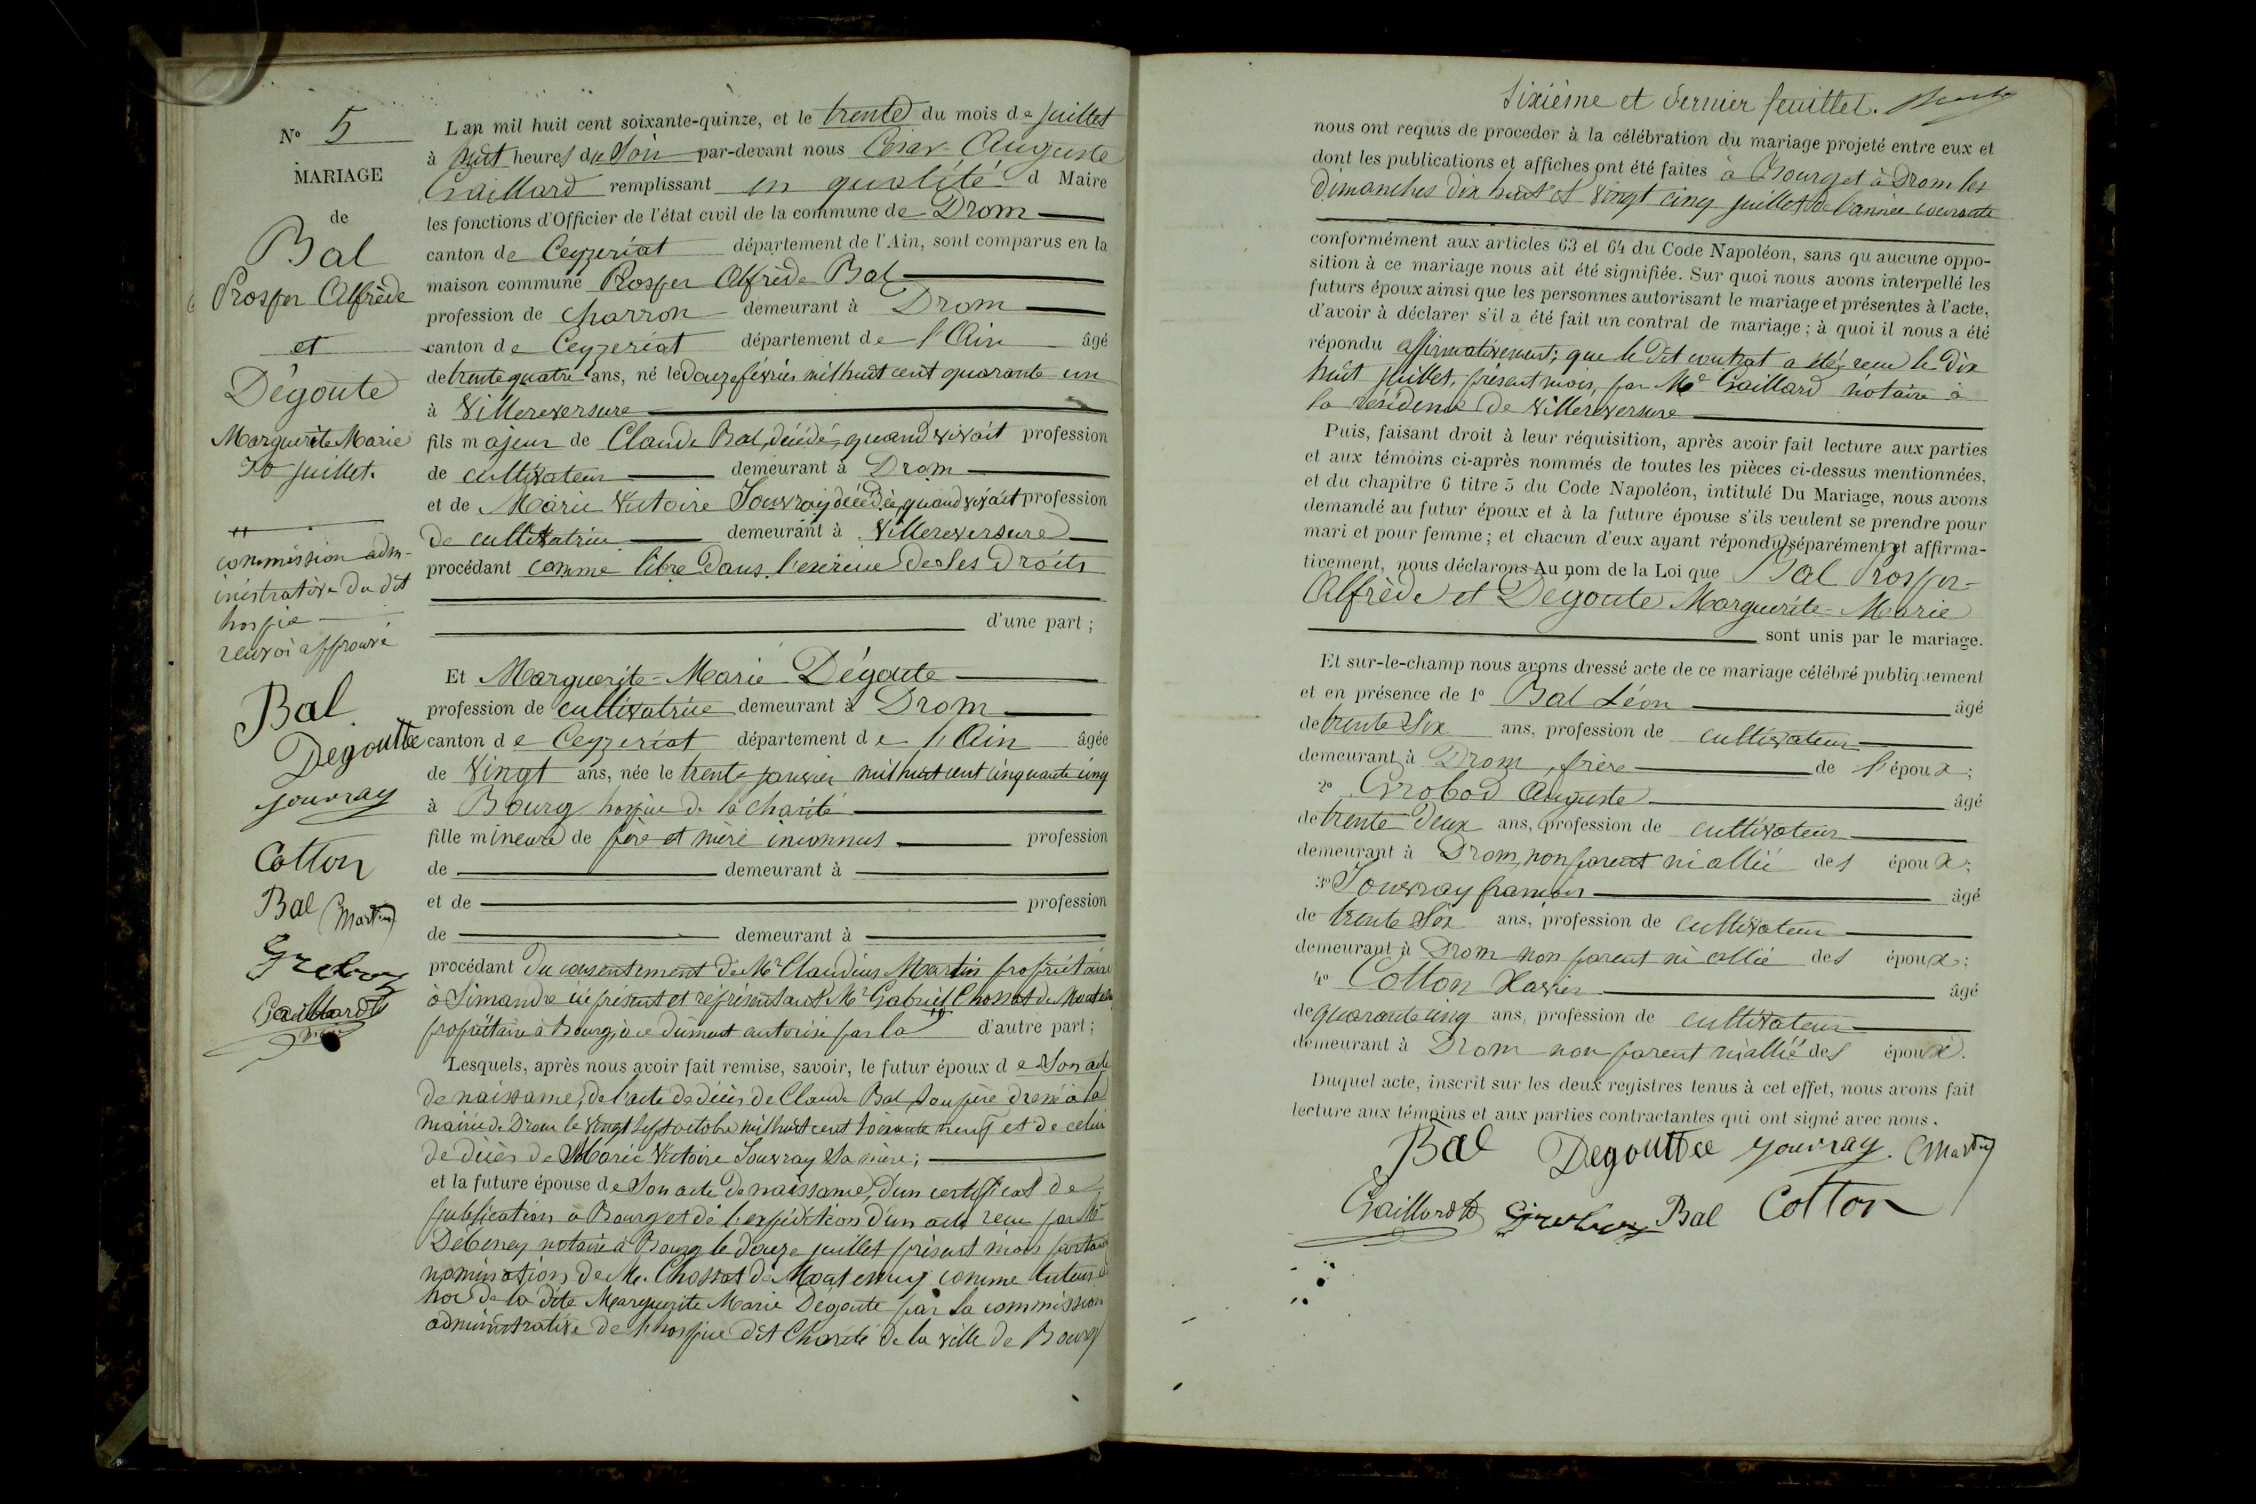 N° 5
MARIAGE
de
Bal
Prosper Alfrède
et
Dégoute
Marguerite Marie
30 juillet.
commission adm-
inistrative du dit
hospice
renvoi approuvé
Bal
Degoutte
Jouvray
Cotton
Bal Martin
Gaillard
L'an mil huit cent soixante-quinze, et le trente du mois de juillet
à huit heures du Soir par-devant nous César Auguste
Gaillard remplissant en qualité d Maire
les fonctions d'Officier de l'état civil de la commune de Drom
canton de Ceyzeriat département de l'Ain, sont comparus en la
maison commune Prosper Alfrède Bal
profession de charron demeurant à Drom
canton de Ceyzeriat département de l'Ain âgé
de trente quatre ans, né le douze février mil huit cent quarante un
à Villereversure
fils majeur de Claude Bal, décédé, quand vivait profession
de cultivateur demeurant à Drom
et de Marie Victoire Jouvray décédée, quand vivait profession
de cultivatrice demeurant à Villereversure
procédant comme libre dans l'exercice de ses droits
d'une part ;
Et Marguerite-Marie Dégoute
profession de cultivatrice demeurant à Drom
canton de Ceyzeriat département de l'Ain âgée
de Vingt ans, née le trente janvier mil huit cent cinquante cinq
à Bourg hospice de la charité
fille mineure de père et mère inconnus profession
de demeurant à
et de profession
de demeurant à
procédant du consentement de Mr Claudius Martin propriétaire
à Simandre ici présent et représentant Mr Gabriel Chossat de
propriétaire à Bourg, à ce dûment autorisé par la d'autre part ;
Lesquels, après nous avoir fait remise, savoir, le futur époux de Son acte
de naissance, de l'acte de décès de Claude Bal, son père dressé à la
mairie de Drom le vingt sept octobre mil huit cent soixante neuf et de celui
de décès de Marie Victoire Jouvray sa mère ;
et la future épouse de Son acte de naissance, d'un certificat de
publication à Bourg et de l'expédition d'un acte reçu par Me
Debeney notaire à Bourg le douze juillet présent mois portant
nomination de M. Chossat de Montemuy comme tuteur
hoc de la dite Marguerite Marie Dégoute par la commission
administrative de l'hospice dit Charité de la ville de Bourg
Sixième et dernier feuillet.
nous ont requis de procéder à la célébration du mariage projeté entre eux et
dont les publications et affiches ont été faites à Bourg et à Drom les
dimanches dix huit et vingt cinq juillet de l'année courante
conformément aux articles 63 et 64 du Code Napoléon, sans qu'aucune oppo-
sition à ce mariage nous ait été signifiée. Sur quoi nous avons interpellé les
futurs époux ainsi que les personnes autorisant le mariage et présentes à l'acte,
d'avoir à déclarer s'il a été fait un contrat de mariage ; à quoi il nous a été
répondu affirmativement ; que le dit contrat a été reçu le dix
huit juillet, présent mois, par Me Gaillard notaire à
la résidence de Villereversure
Puis, faisant droit à leur réquisition, après avoir fait lecture aux parties
et aux témoins ci-après nommés de toutes les pièces ci-dessus mentionnées,
et du chapitre 6 titre 5 du Code Napoléon, intitulé Du Mariage, nous avons
demandé au futur époux et à la future épouse s'ils veulent se prendre pour
mari et pour femme ; et chacun d'eux ayant répondu séparément et affirma-
tivement, nous déclarons Au nom de la Loi que Bal Prosper-
Alfrède et Dégoute Marguerite-Marie
sont unis par le mariage.
Et sur-le-champ nous avons dressé acte de ce mariage célébré publiquement
et en présence de 1° Bal Léon âgé
de trente Six ans, profession de cultivateur
demeurant à Drom, frère de l'époux ;
2° Grobod Auguste âgé
de trente deux ans, profession de cultivateur
demeurant à Drom, non parent ni allié des époux ;
3° Jouvray françois âgé
de trente Six ans, profession de cultivateur
demeurant à Drom non parent ni allié des époux ;
4° Cotton Xavier âgé
de quarante cinq ans, profession de cultivateur
demeurant à Drom non parent ni allié des époux.
Duquel acte, inscrit sur les deux registres tenus à cet effet, nous avons fait
lecture aux témoins et aux parties contractantes qui ont signé avec nous.
Bal Degouttee Jouvray. Martin
Gaillard Bal Cotton